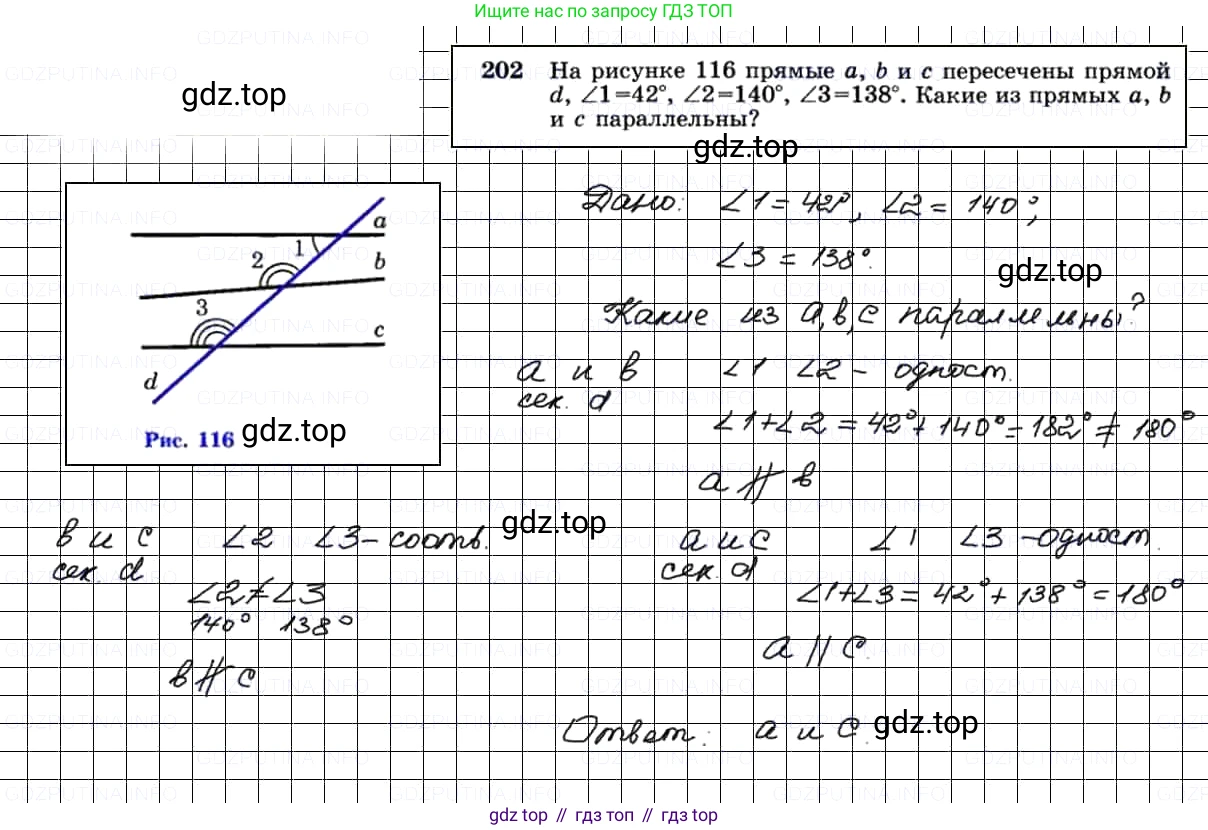 Ищите нас по запросу ГДЗ ТОП
202 На рисунке 116 прямые a, b и c пересечены прямой
d, ∠1=42°, ∠2=140°, ∠3=138°. Какие из прямых a, b
и c параллельны?
gdz.top
gdz.top
Дано: ∠1 = 42°, ∠2 = 140°;
∠3 = 138°.
gdz.top
Какие из a, b, c параллельны?
a
1
2
b
3
c
d
Рис. 116
gdz.top
a и b ∠1 ∠2 - одност.
сек. d
∠1+∠2 = 42°+140°=182° ≠ 180°
a ∦ b
b и c ∠2 ∠3 - соотв.
сек. d
∠2 ≠ ∠3
140° 138°
b ∦ c
gdz.top
a и c ∠1 ∠3 - одност.
сек. d
∠1+∠3 = 42°+138°=180°
a // c.
Ответ: a и c.
gdz.top
gdz top // гдз топ // гдз top
GDZPUTINA.INFO